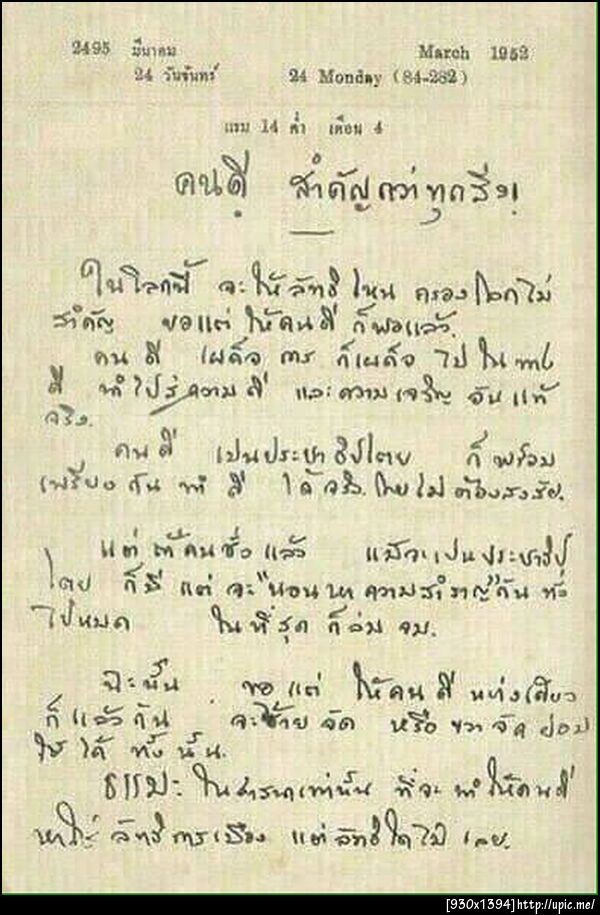 2495 มีนาคม March 1952
24 วันจันทร์ 24 Monday (84-282)
แรม 14 ค่ำ เดือน 4
คนดี สำคัญกว่าทุกสิ่ง!
ในโลกนี้ จะให้ลัทธิไหน ครองโลกไม่
สำคัญ ขอแต่ ให้คนดี ก็พอแล้ว.
คนดี เผด็จการ ก็เผด็จ ไปในทาง
ดี ทำไปสู่ความดี และความเจริญ อันแท้
จริง.
คนดี เป็นประชาธิปไตย ก็พร้อม
เพรียงกัน ทำดี ได้จริง โดยไม่ต้องสงสัย.
แต่ถ้าคนชั่วแล้ว แม้จะเป็นประชาธิป
ไตย ก็มีแต่จะ"นอนหาความสำราญ"กันทั้ง
ไปหมด ในที่สุดก็ล่มจม.
ฉะนั้น ขอแต่ ให้คนดี อย่างเดียว
ก็แล้วกัน จะซ้ายจัด หรือขวาจัด ย่อม
ใช้ได้ ทั้งนั้น.
ธรรมะ ในศาสนาเท่านั้น ที่จะทำให้คนดี
หาใช่ ลัทธิการเมือง แต่ลัทธิใดไม่ เลย.
[930x1394]http://upic.me/